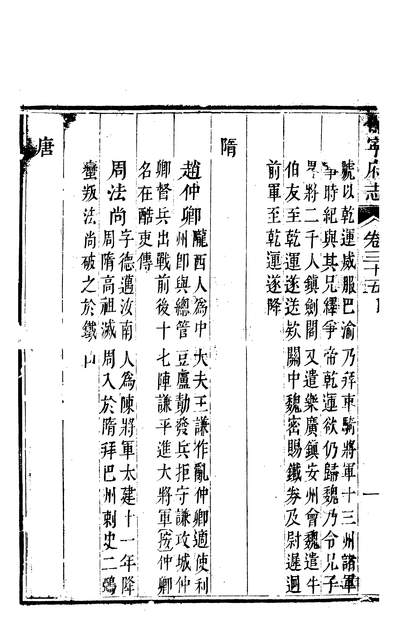 寧府志 卷三十五 一
號以乾運威服巴渝乃拜車騎將軍十三州諸軍
事時紀與其兄繹爭帝乾運欲仍歸魏乃令兄子
畧將二千人鎮劍閣又遣樂廣鎮安州會魏遣牛
伯友至乾運遂送欵關中魏密賜鐵券及尉遲迥
前軍至乾運遂降
隋
趙仲卿隴西人爲中大夫王謙作亂仲卿適使利
州卽與總管豆盧勣發兵拒守謙攻城仲
卿督兵出戰前後十七陣謙平進大將軍按仲卿
名在酷吏傳
周法尚字德邁汝南人爲陳將軍太建十一年降
周隋高祖滅周入於隋拜巴州刺史二鵶
蠻叛法尚破之於鐵山
唐